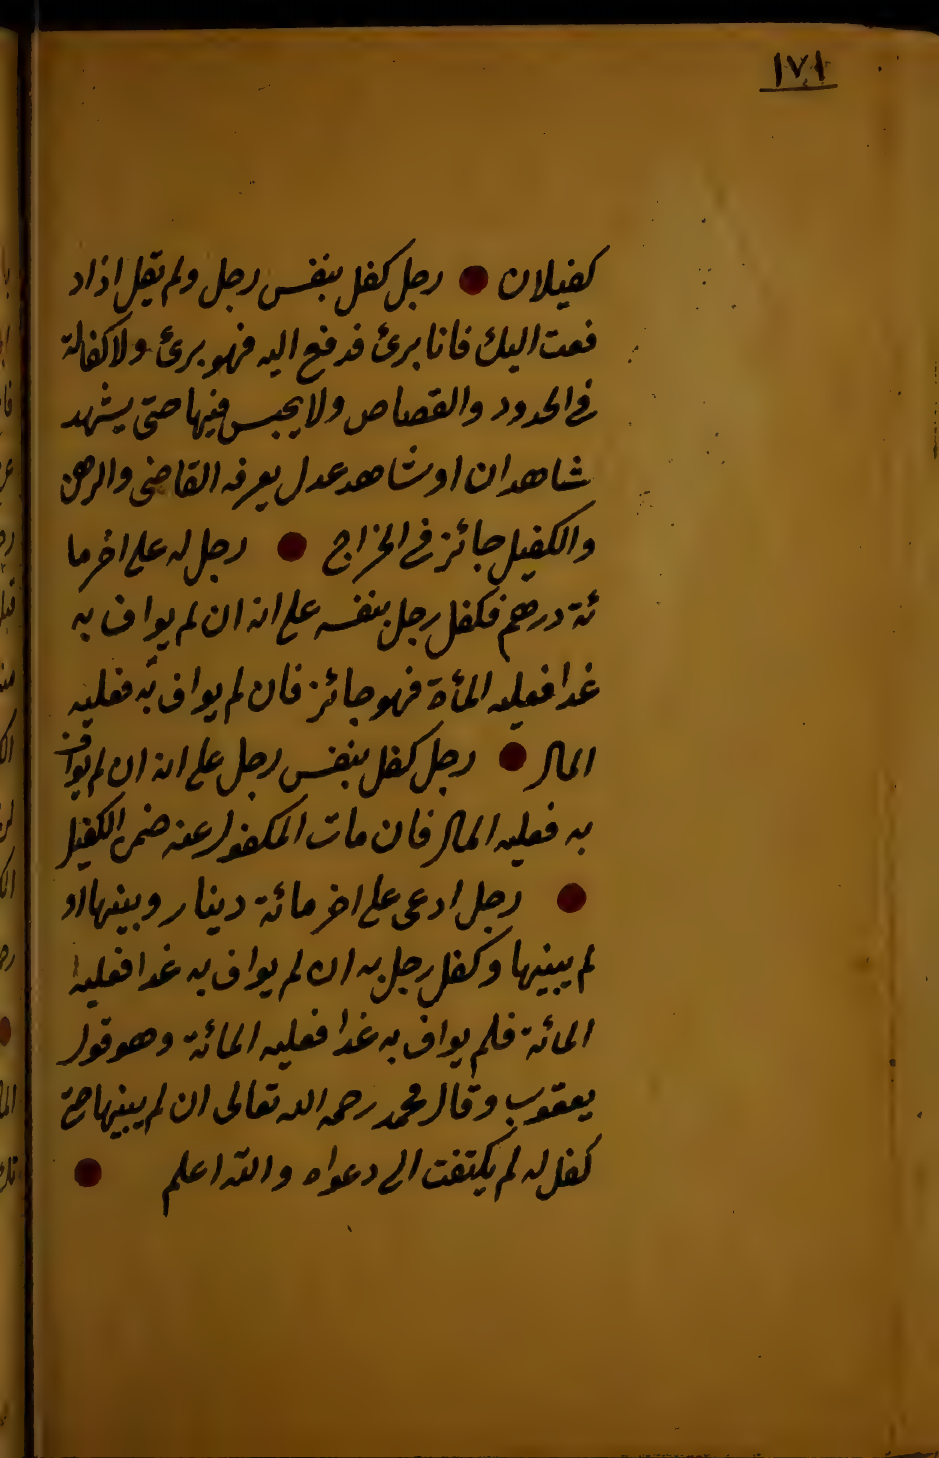 ١٧١
كفيلان رجل كفل بنفس رجل ولم يقل اذا د
فعت اليك فانا برئ فدفع اليه فهو برئ ولا كفالة
في الحدود والقصاص ولا يحبس فيها حتى يشهد
شاهدان او شاهد عدل يعرفه القاضى والرهن
والكفيل جائز في الخراج رجل له على اخر ما
ئة درهم فكفل رجل بنفسه على انه ان لم يواف به
غدا فعليه المأة فهو جائز فان لم يواف به فعليه
المال رجل كفل بنفس رجل على انه ان لم يواف
به فعليه المال فان مات المكفول عنه ضمن الكفيل
رجل ادعى على اخر مائة دينار وبينها او
لم يبينها وكفل رجل به ان لم يواف به غدا فعليه
المائة فلم يواف به غدا فعليه المائة وهو قول
يعقوب وقال محمد رحمه الله تعالى ان لم يبينها حتى
كفل له لم يكتفت الى دعواه والله اعلم